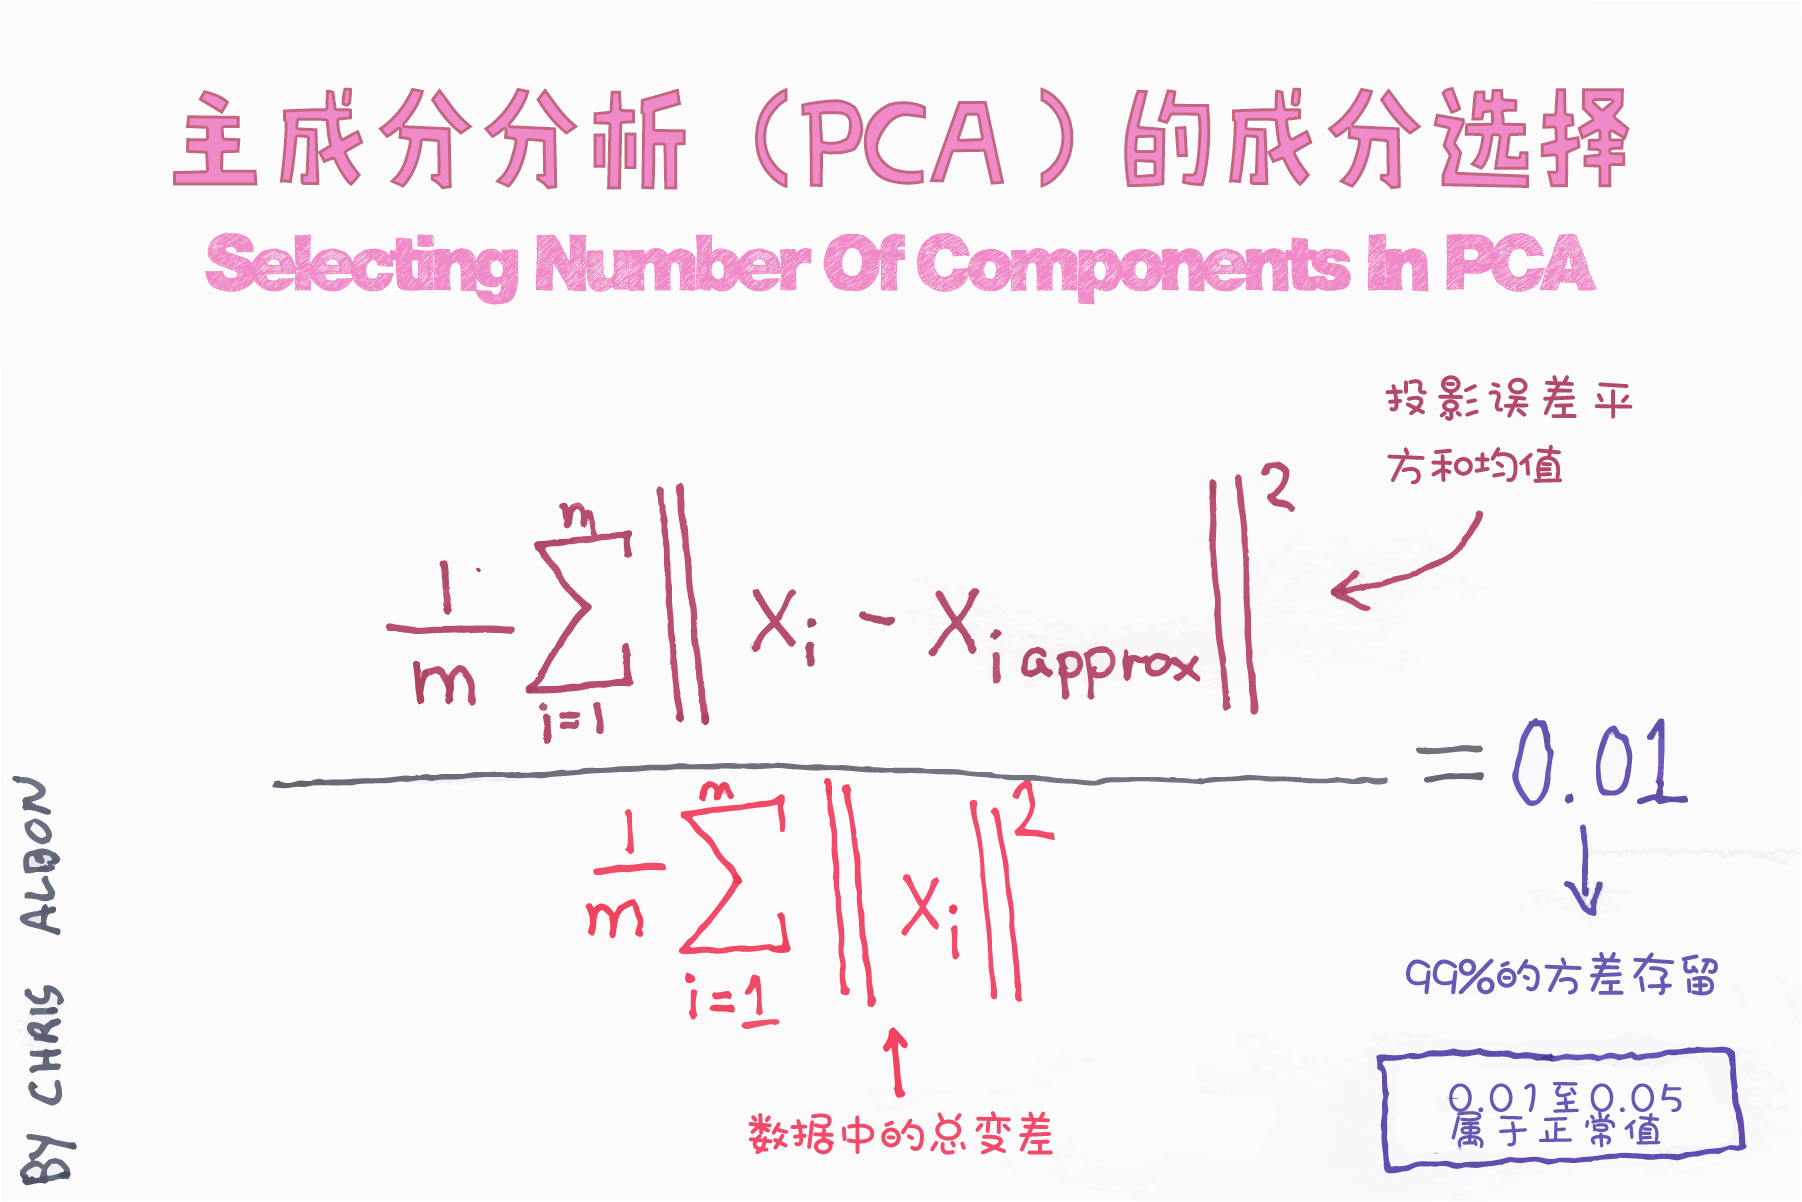 主成分分析（PCA）的成分选择
Selecting Number Of Components In PCA
投影误差平
方和均值
1/m ∑ m i=1 ‖ Xi - Xi approx ‖ 2
= 0.01
1/m ∑ m i=1 ‖ Xi ‖ 2
99%的方差存留
数据中的总变差
0.01至0.05
属于正常值
BY CHRIS ALBON